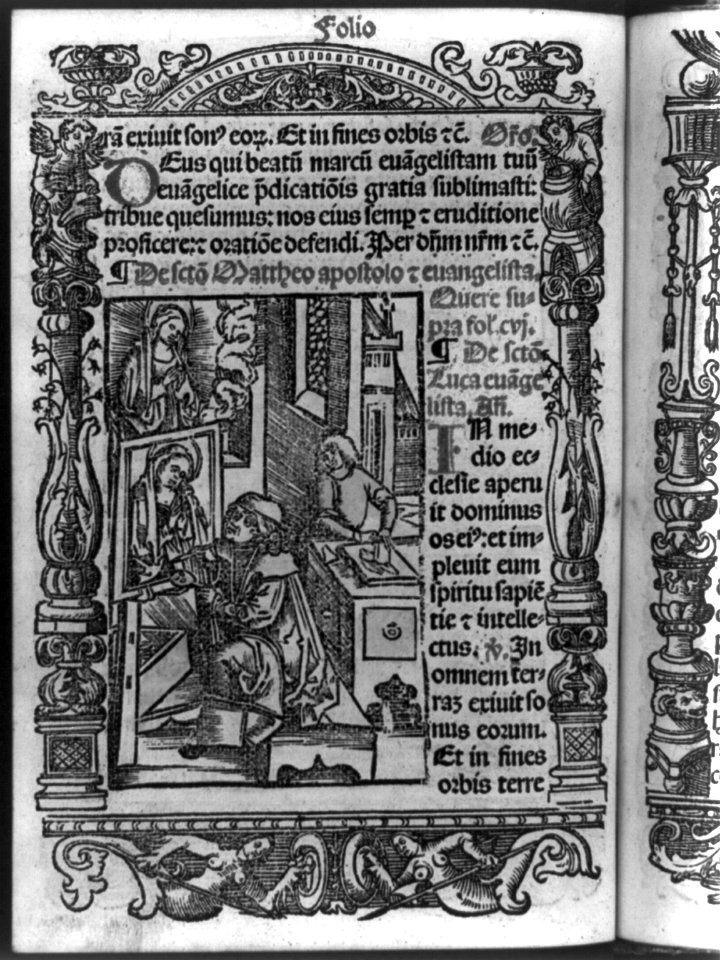 Folio
rã exiuit son⁹ eoꝝ. Et in fines orbis ⁊c̃. Oŕo.
Deus qui beatũ marcũ euãgelistam tuũ
euãgelice p̃dicatiõis gratia sublimasti:
tribue quesumus: nos eius semꝑ ⁊ eruditione
proficere: ⁊ oratiõe defendi. Per dñm nr̃m ⁊c̃.
¶ De sctõ Mattheo apostolo ⁊ euangelista.
Quere su⸗
pra fol. cvj.
¶ De sctõ
Luca euãge
lista. Añ.
IN me⸗
dio ec⸗
clesie aperu
it dominus
os ei⁹: et im⸗
pleuit eum
spiritu sapiẽ
tie ⁊ intelle⸗
ctus. ℣. In
omnem ter⸗
raꝫ exiuit so
nus eorum.
Et in fines
orbis terre